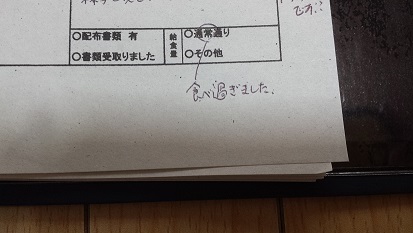 ○配布書類 有
○書類受取りました
給食量
○通常通り
○その他
食べ過ぎました.